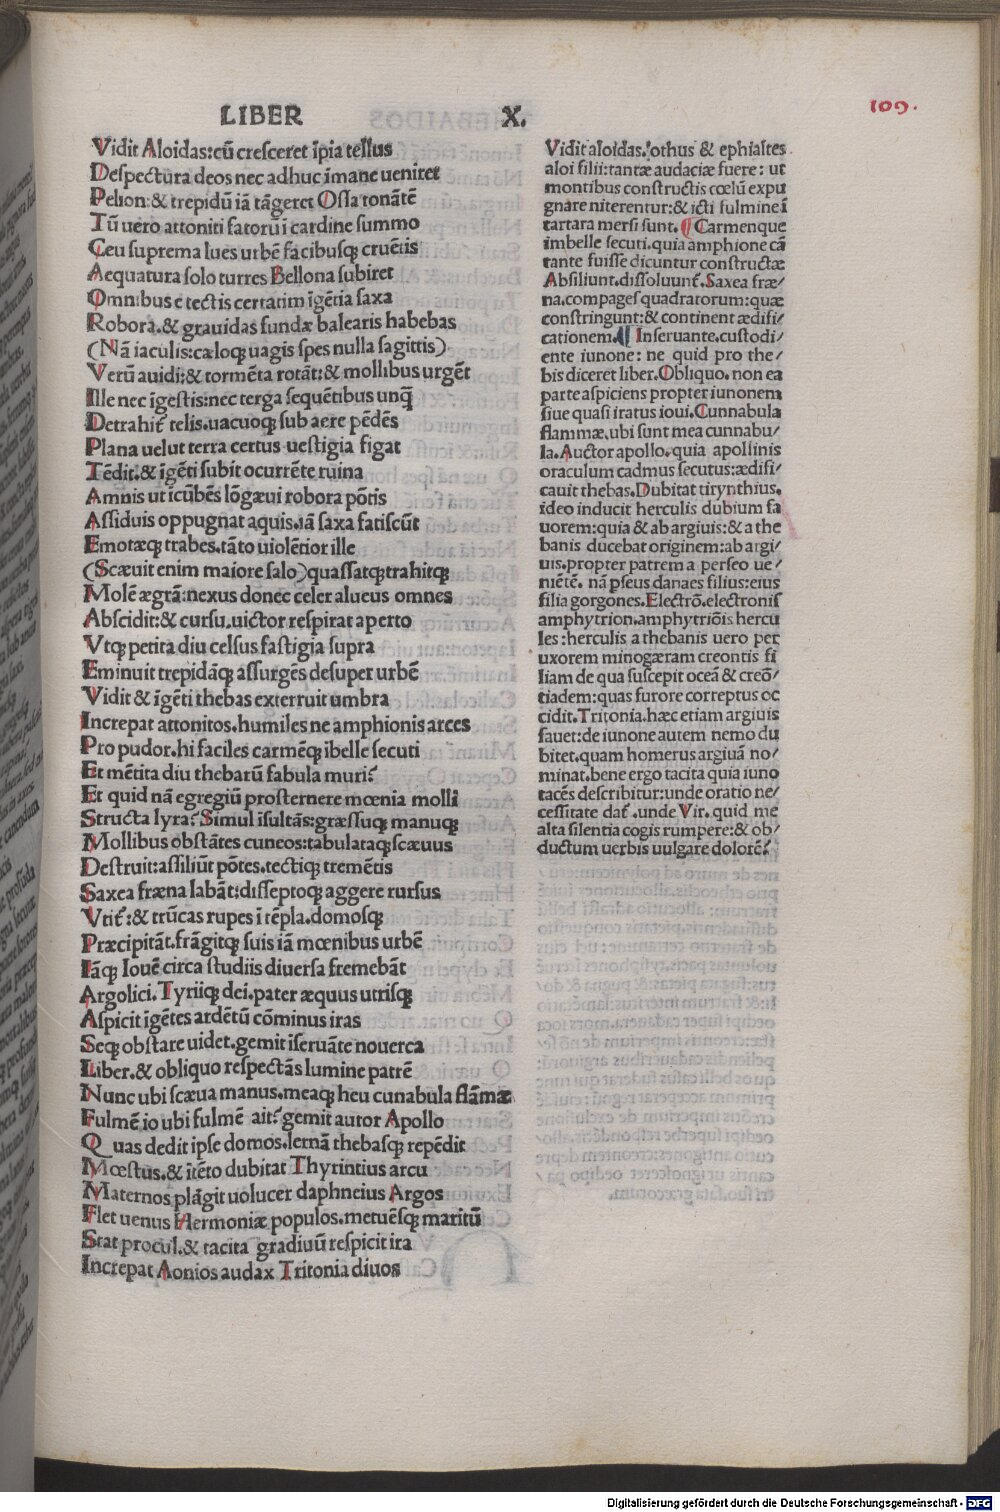 LIBER X.
109.
Vidit Aloidas:cū cresceret īpia tellus
Despectura deos nec adhuc īmane ueniret
Pelion:& trepidū iā tāgeret Ossa tonātē
Tū uero attoniti fatorū ī cardine summo
Ceu suprema lues urbē facibusq; cruētis
Aequatura solo turres Bellona subiret
Omnibus e tectis certatim īgētia saxa
Robora.& grauidas fundæ balearis habebas
(Nā iaculis:cæloq; uagis spes nulla sagittis)
Verū auidi:& tormēta rotāt:& mollibus urgēt
Ille nec īgestis:nec terga sequētibus unq̄
Detrahit̄ telis.uacuoq; sub aere pēdēs
Plana uelut terra certus uestigia figat
Tēdit.& īgēti subit occurrēte ruina
Amnis ut īcūbēs lōgæui robora pōtis
Assiduis oppugnat aquis.iā saxa fatiscūt
Emotæq; trabes.tāto uiolētior ille
(Scæuit enim maiore salo)quassatq; trahitq;
Molē ægrā:nexus donec celer alueus omnes
Abscidit:& cursu.uictor respirat aperto
Vtq; petita diu celsus fastigia supra
Eminuit trepidāq; assurgēs desuper urbē
Vidit & īgēti thebas exterruit umbra
Increpat attonitos.humiles ne amphionis arces
Pro pudor.hi faciles carmēq; ībelle secuti
Et mētita diu thebarū fabula muri?
Et quid nā egregiū prosternere mœnia molli
Structa lyra? Simul īsultās:græssuq; manuq;
Mollibus obstātes cuneos:tabulataq; scæuus
Destruit:assiliūt pōtes.tectiq; tremētis
Saxea fræna labāt:disseptoq; aggere rursus
Vtit̄:& trūcas rupes ī tēpla.domosq;
Præcipitāt.frāgitq; suis iā mœnibus urbē
Iāq; Iouē circa studiis diuersa fremebāt
Argolici.Tyriiq; dei.pater æquus utrisq;
Aspicit īgētes ardētū cōminus iras
Seq; obstare uidet.gemit īseruāte nouerca
Liber.& obliquo respectās lumine patrē
Nunc ubi scæua manus.meaq; heu cunabula flāmæ
Fulmē io ubi fulmē ait? gemit autor Apollo
Quas dedit ipse domos.lernā thebasq; repēdit
Mœstus.& ītēto dubitat Thyrintius arcu
Maternos plāgit uolucer daphneius Argos
Flet uenus Hermoniæ populos.metuēsq; maritū
Stat procul.& tacita gradiuū respicit ira
Increpat Aonios audax Tritonia diuos
Vidit aloidas.othus & ephialtes
aloi filii:tantæ audaciæ fuere: ut
montibus constructis cœlū expu
gnare niterentur:& icti fulmine ī
tartara mersi sunt. ¶ Carmenque
imbelle secuti.quia amphione cā
tante fuisse dicuntur constructæ
Absiliunt.dissoluunt̄.Saxea fræ/
na.compages quadratorum:quæ
constringunt:& continent ædifi/
cationem.¶ Inseruante.custodi/
ente iunone: ne quid pro the/
bis diceret liber.Obliquo.non ea
parte aspiciens propter iunonem
siue quasi iratus ioui.Cunnabula
flammæ.ubi sunt mea cunnabu/
la.Auctor apollo.quia apollinis
oraculum cadmus secutus:ædifi/
cauit thebas.Dubitat tirynthius.
ideo inducit herculis dubium fa
uorem:quia & ab argiuis:& a the
banis ducebat originem:ab argi/
uis.propter patrem a perseo ue/
niētē. nā pseus danaes filius:eius
filia gorgones.Electrō.electronis
amphytrion.amphytriōis hercu
les:herculis a thebanis uero per
uxorem minogæram creontis fi
liam de qua suscepit oceā & creō/
tiadem:quas furore correptus oc
cidit.Tritonia.hæc etiam argiuis
fauet:de iunone autem nemo du
bitet.quam homerus argiuā no/
minat.bene ergo tacita quia iuno
tacēs describitur:unde oratio ne/
cessitate dat̄.unde Vir.quid me
alta silentia cogis rumpere:& ob/
ductum uerbis uulgare dolorē?
Digitalisierung gefördert durch die Deutsche Forschungsgemeinschaft - DFG